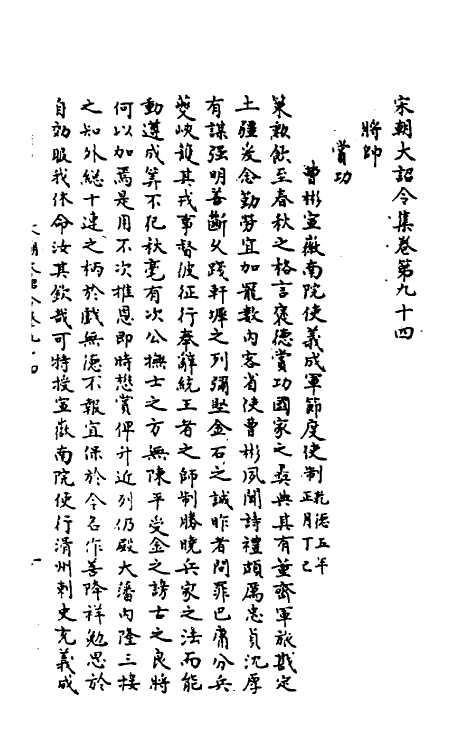 宋朝大詔令集卷第九十四
將帥
賞功
曹彬宣徽南院使義成軍節度使制乾德五年正月丁巳
策勲飲至春秋之格言褒德賞功國家之彝典其有董齊軍旅戡定
土疆爰念勤勞宜加寵數內客省使曹彬夙聞詩禮頗厲忠貞沈厚
有謀强明善斷久踐軒墀之列彌堅金石之誠昨者問罪巴庸分兵
夔峽護其戎事督彼征行奉辭統王者之師制勝曉兵家之法而能
動遵成筭不犯秋毫有次公撫士之方無陳平受金之謗士之良將
何以加焉是用不次推恩即時懋賞俾升近列仍殿大藩內隆三接
之知外總十連之柄於戲無德不報宜保於令名作善降祥勉思於
自効服我休命汝其欽哉可特授宣徽南院使行滑州刺史充義成
一